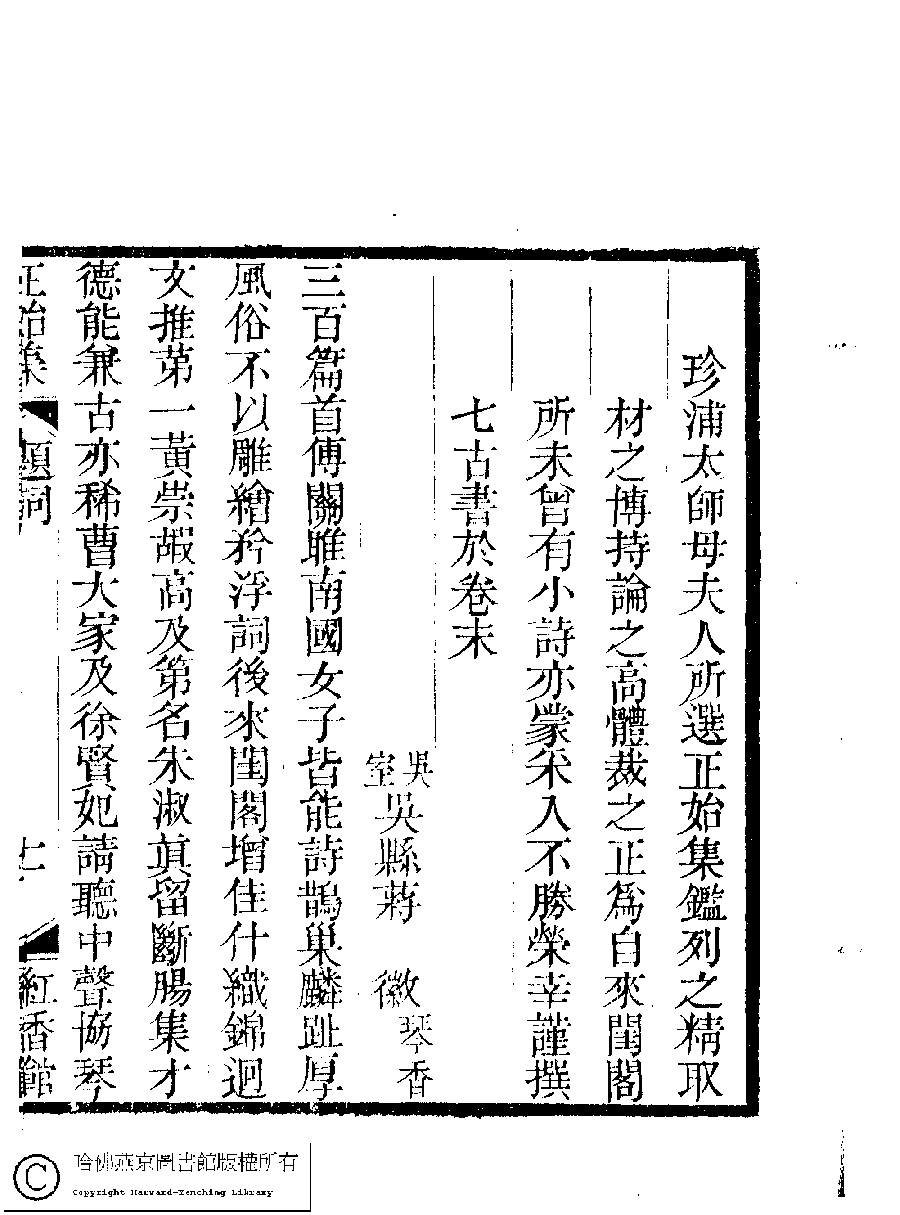 珍浦太師母夫人所選正始集鑑列之精取
材之博持論之高體裁之正爲自來閨閣
所未曾有小詩亦蒙采入不勝榮幸謹撰
七古書於卷末
吳室吳縣蔣 徽琴香
三百篇首傳關雎南國女子皆能詩鵲巢麟趾厚
風俗不以雕繪矜浮詞後來閨閣增佳什織錦迴
文推苐一黃崇嘏高及第名朱淑眞留斷腸集才
德能兼古亦稀曹大家及徐賢妃請聽中聲協琴
正始集 題詞 七 紅香館
哈佛燕京圖書館版權所有
Copyright Harvard-Yenching Library